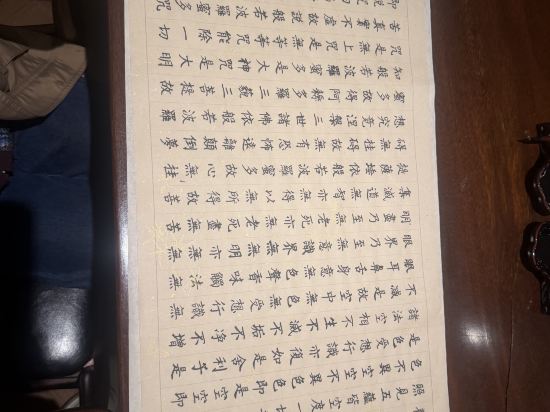 照見五蘊皆空度一切
色不異空空不異色色即是空空即
是色受想行識亦復如是舍利子是
諸法空相不生不滅不垢不淨不增
不減是故空中無色無受想行識無
眼耳鼻舌身意無色聲香味觸法無
眼界乃至無意識界無無明亦無無
明盡乃至無老死亦無老死盡無苦
集滅道無智亦無得以無所得故菩
提薩埵依般若波羅蜜多故心無罣
礙無罣礙故無有恐怖遠離顛倒夢
想究竟涅槃三世諸佛依般若波羅
蜜多故得阿耨多羅三藐三菩提故
知般若波羅蜜多是大神咒是大明
咒是無上咒是無等等咒能除一切
苦真實不虛故說般若波羅蜜多咒
即